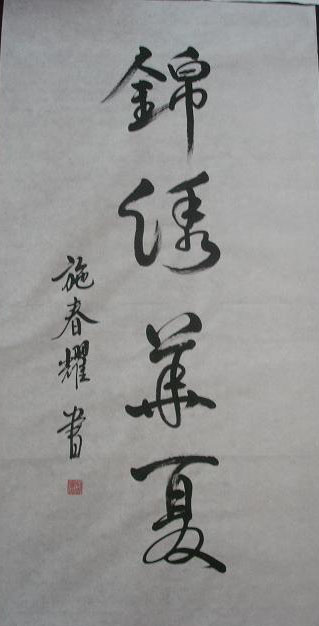 錦綉華夏
施春耀書